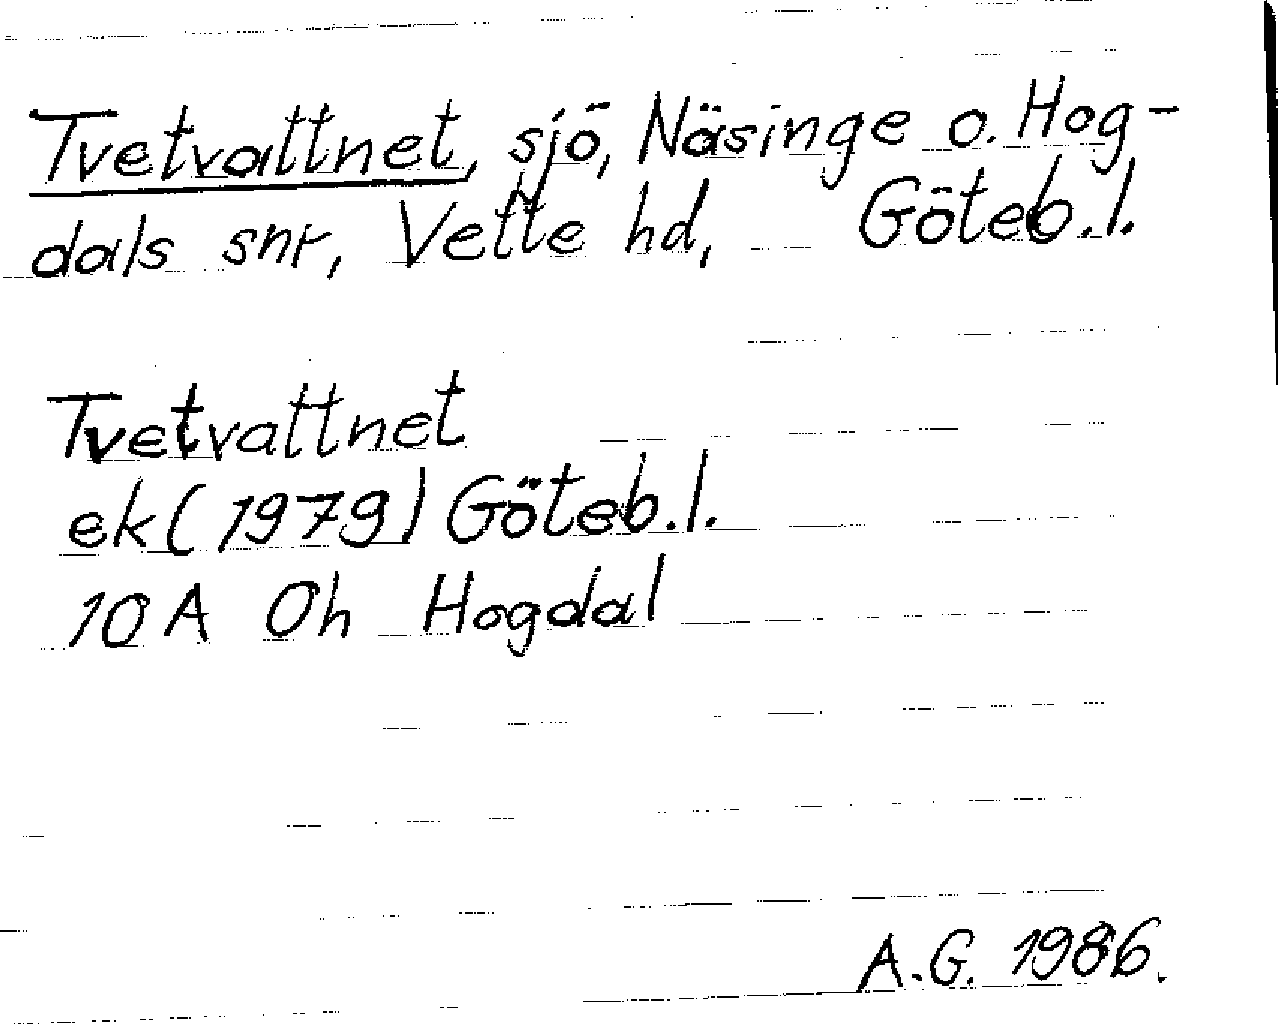 Tvetvattnet, sjö, Näsinge o. Hog-
dals snr, Vette hd, Göteb.l.
Tvetvattnet
ek (1979) Göteb.l.
10A Oh Hogdal
A.G. 1986.